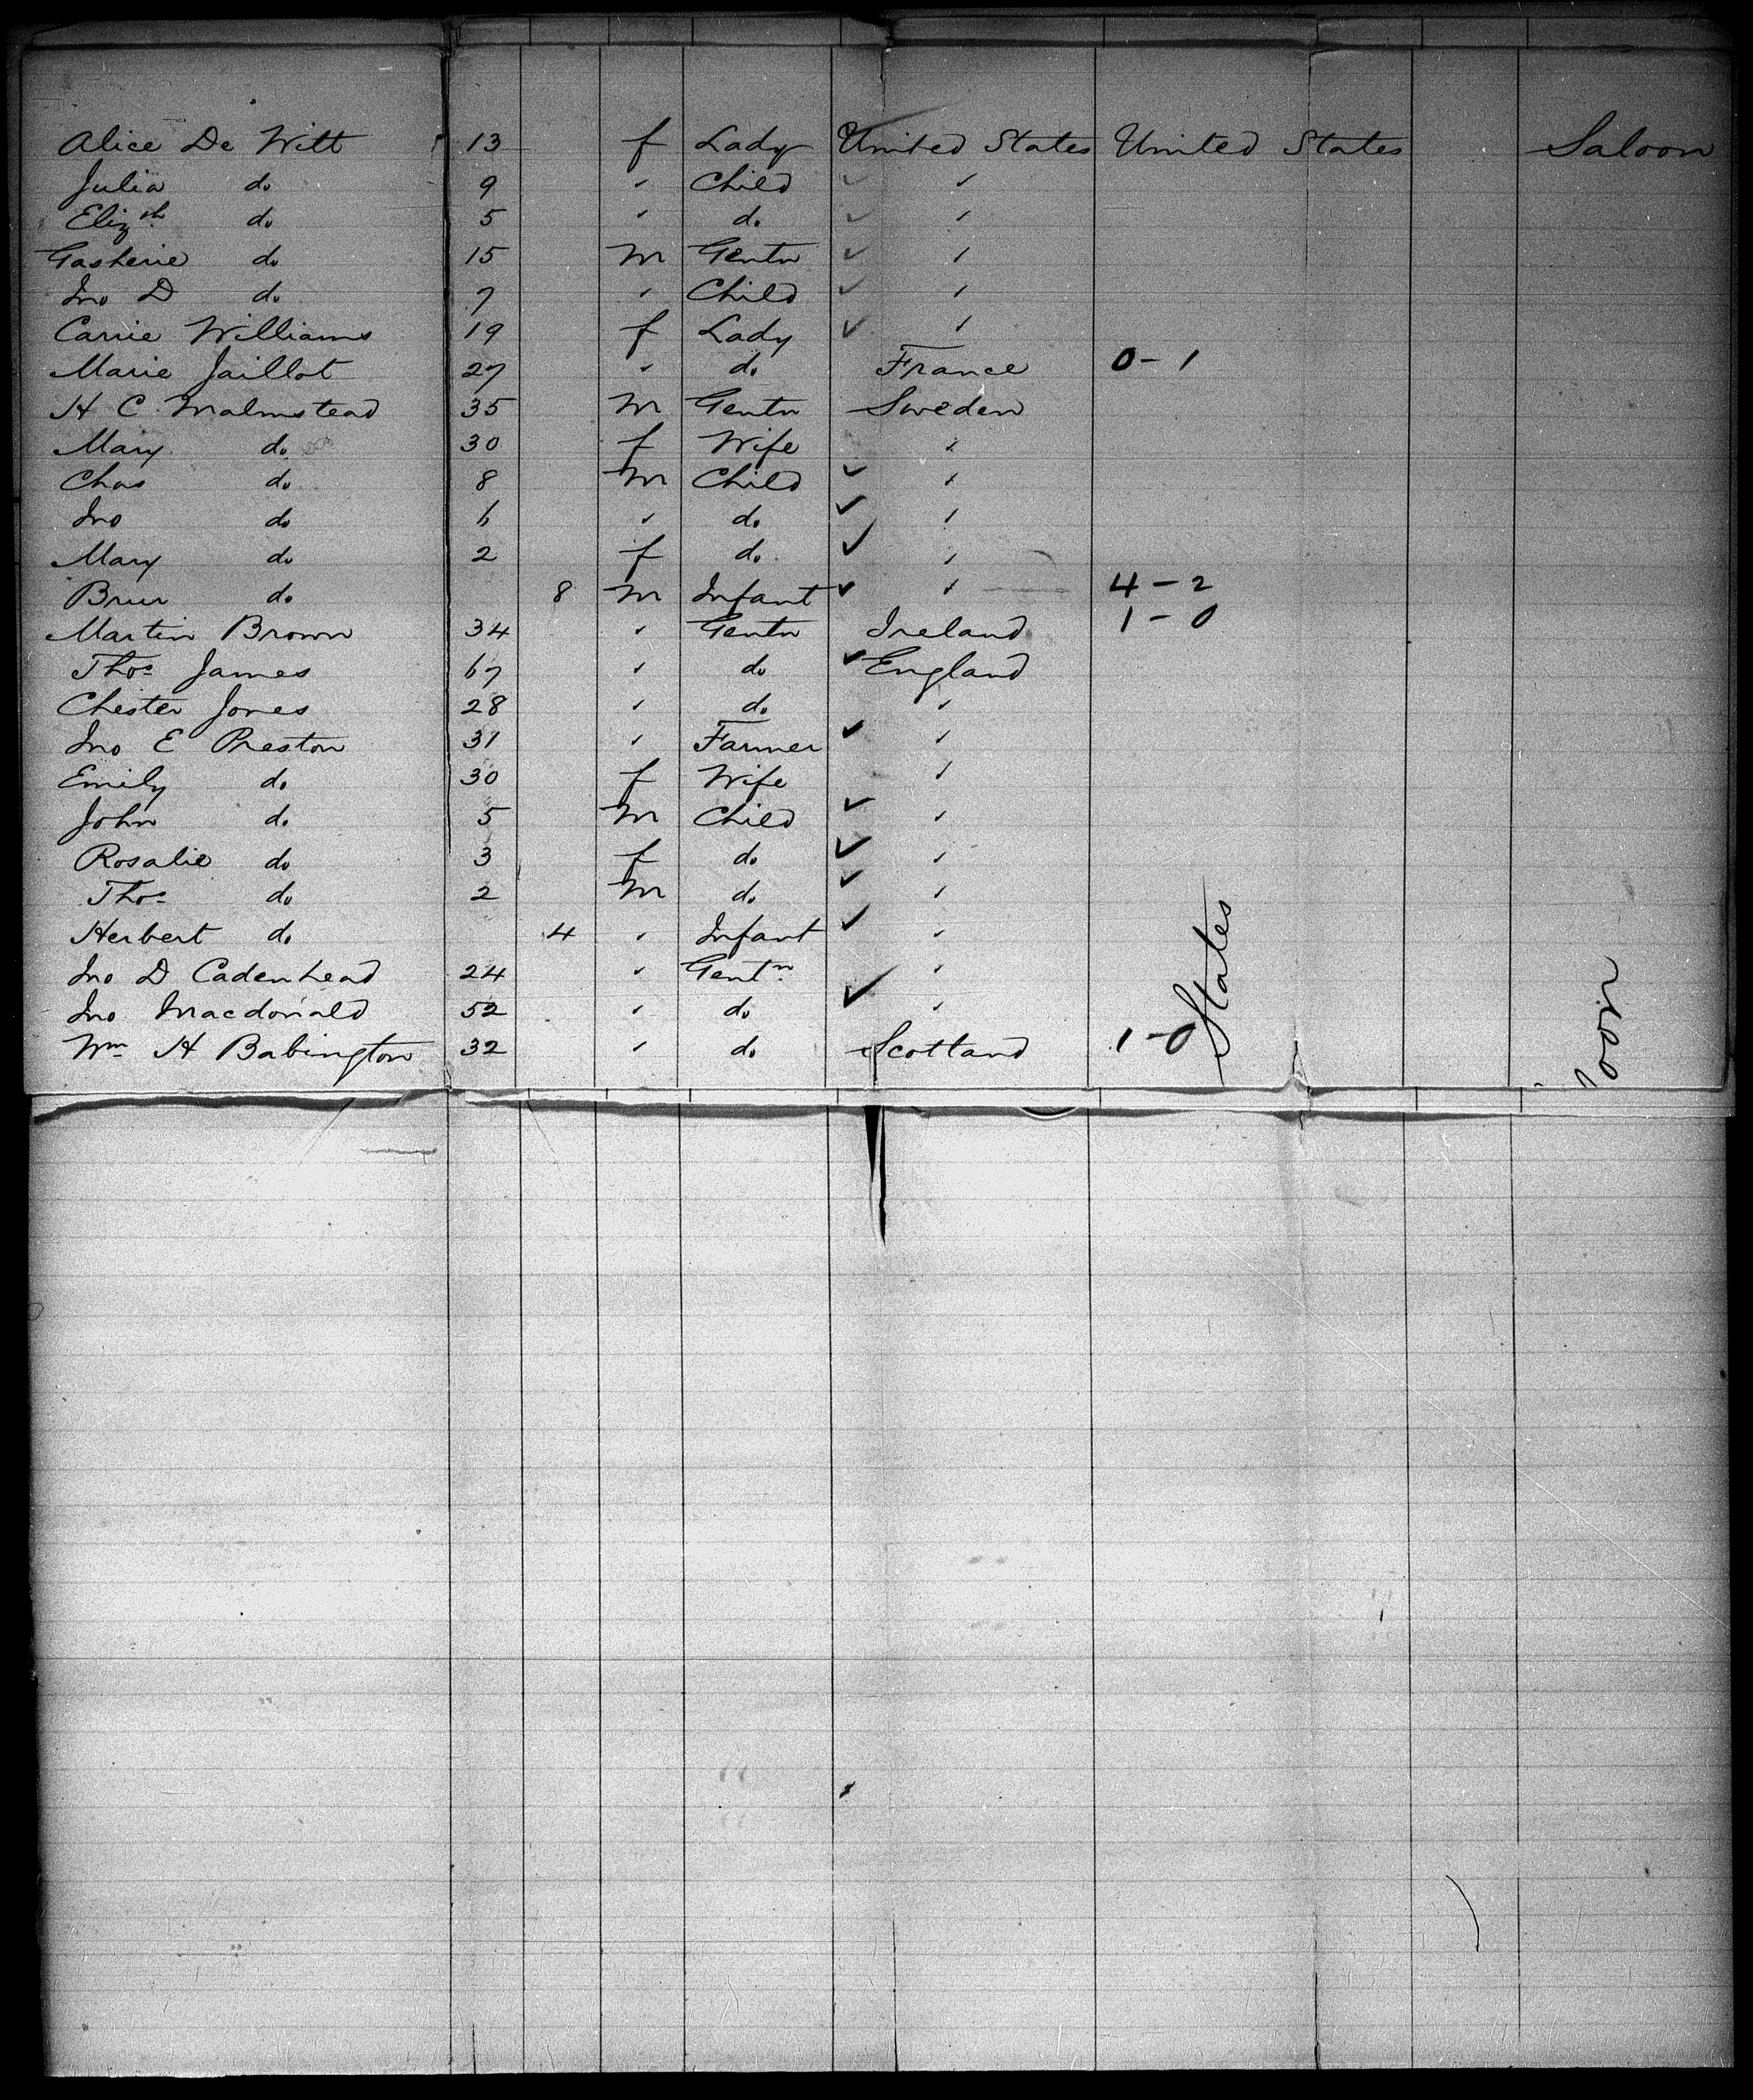 Alice De Witt 13 f Lady United States United States Saloon
Julia do 9 " Child ✓ "
Elizth do 5 " do ✓ "
Gasherie do 15 M Gentn ✓ "
Jno D do 7 " Child ✓ "
Carrie Williams 19 f Lady ✓ "
Marie Jaillot 27 " do France 0-1
H C Malmstead 35 M Gentn Sweden
Mary do 30 f Wife "
Chas do 8 M Child ✓ "
Jno do 6 " do ✓ "
Mary do 2 f do ✓ "
do 8 M Infant ✓ " 4-2
Martin Brown 34 " Gentn Ireland 1-0
Thos James 67 " do ✓ England
Chester Jones 28 " do "
Jno E Preston 31 " Farmer ✓ "
Emily do 30 f Wife "
John do 5 M Child ✓ "
Rosalie do 3 f do ✓ "
Thos do 2 M do ✓ "
Herbert do 4 " Infant ✓ "
Jno D Cadenhead 24 " Gentn "
Jno Macdonald 52 " do ✓ "
Wm H Babington 32 " do Scotland 1-0
States
oon